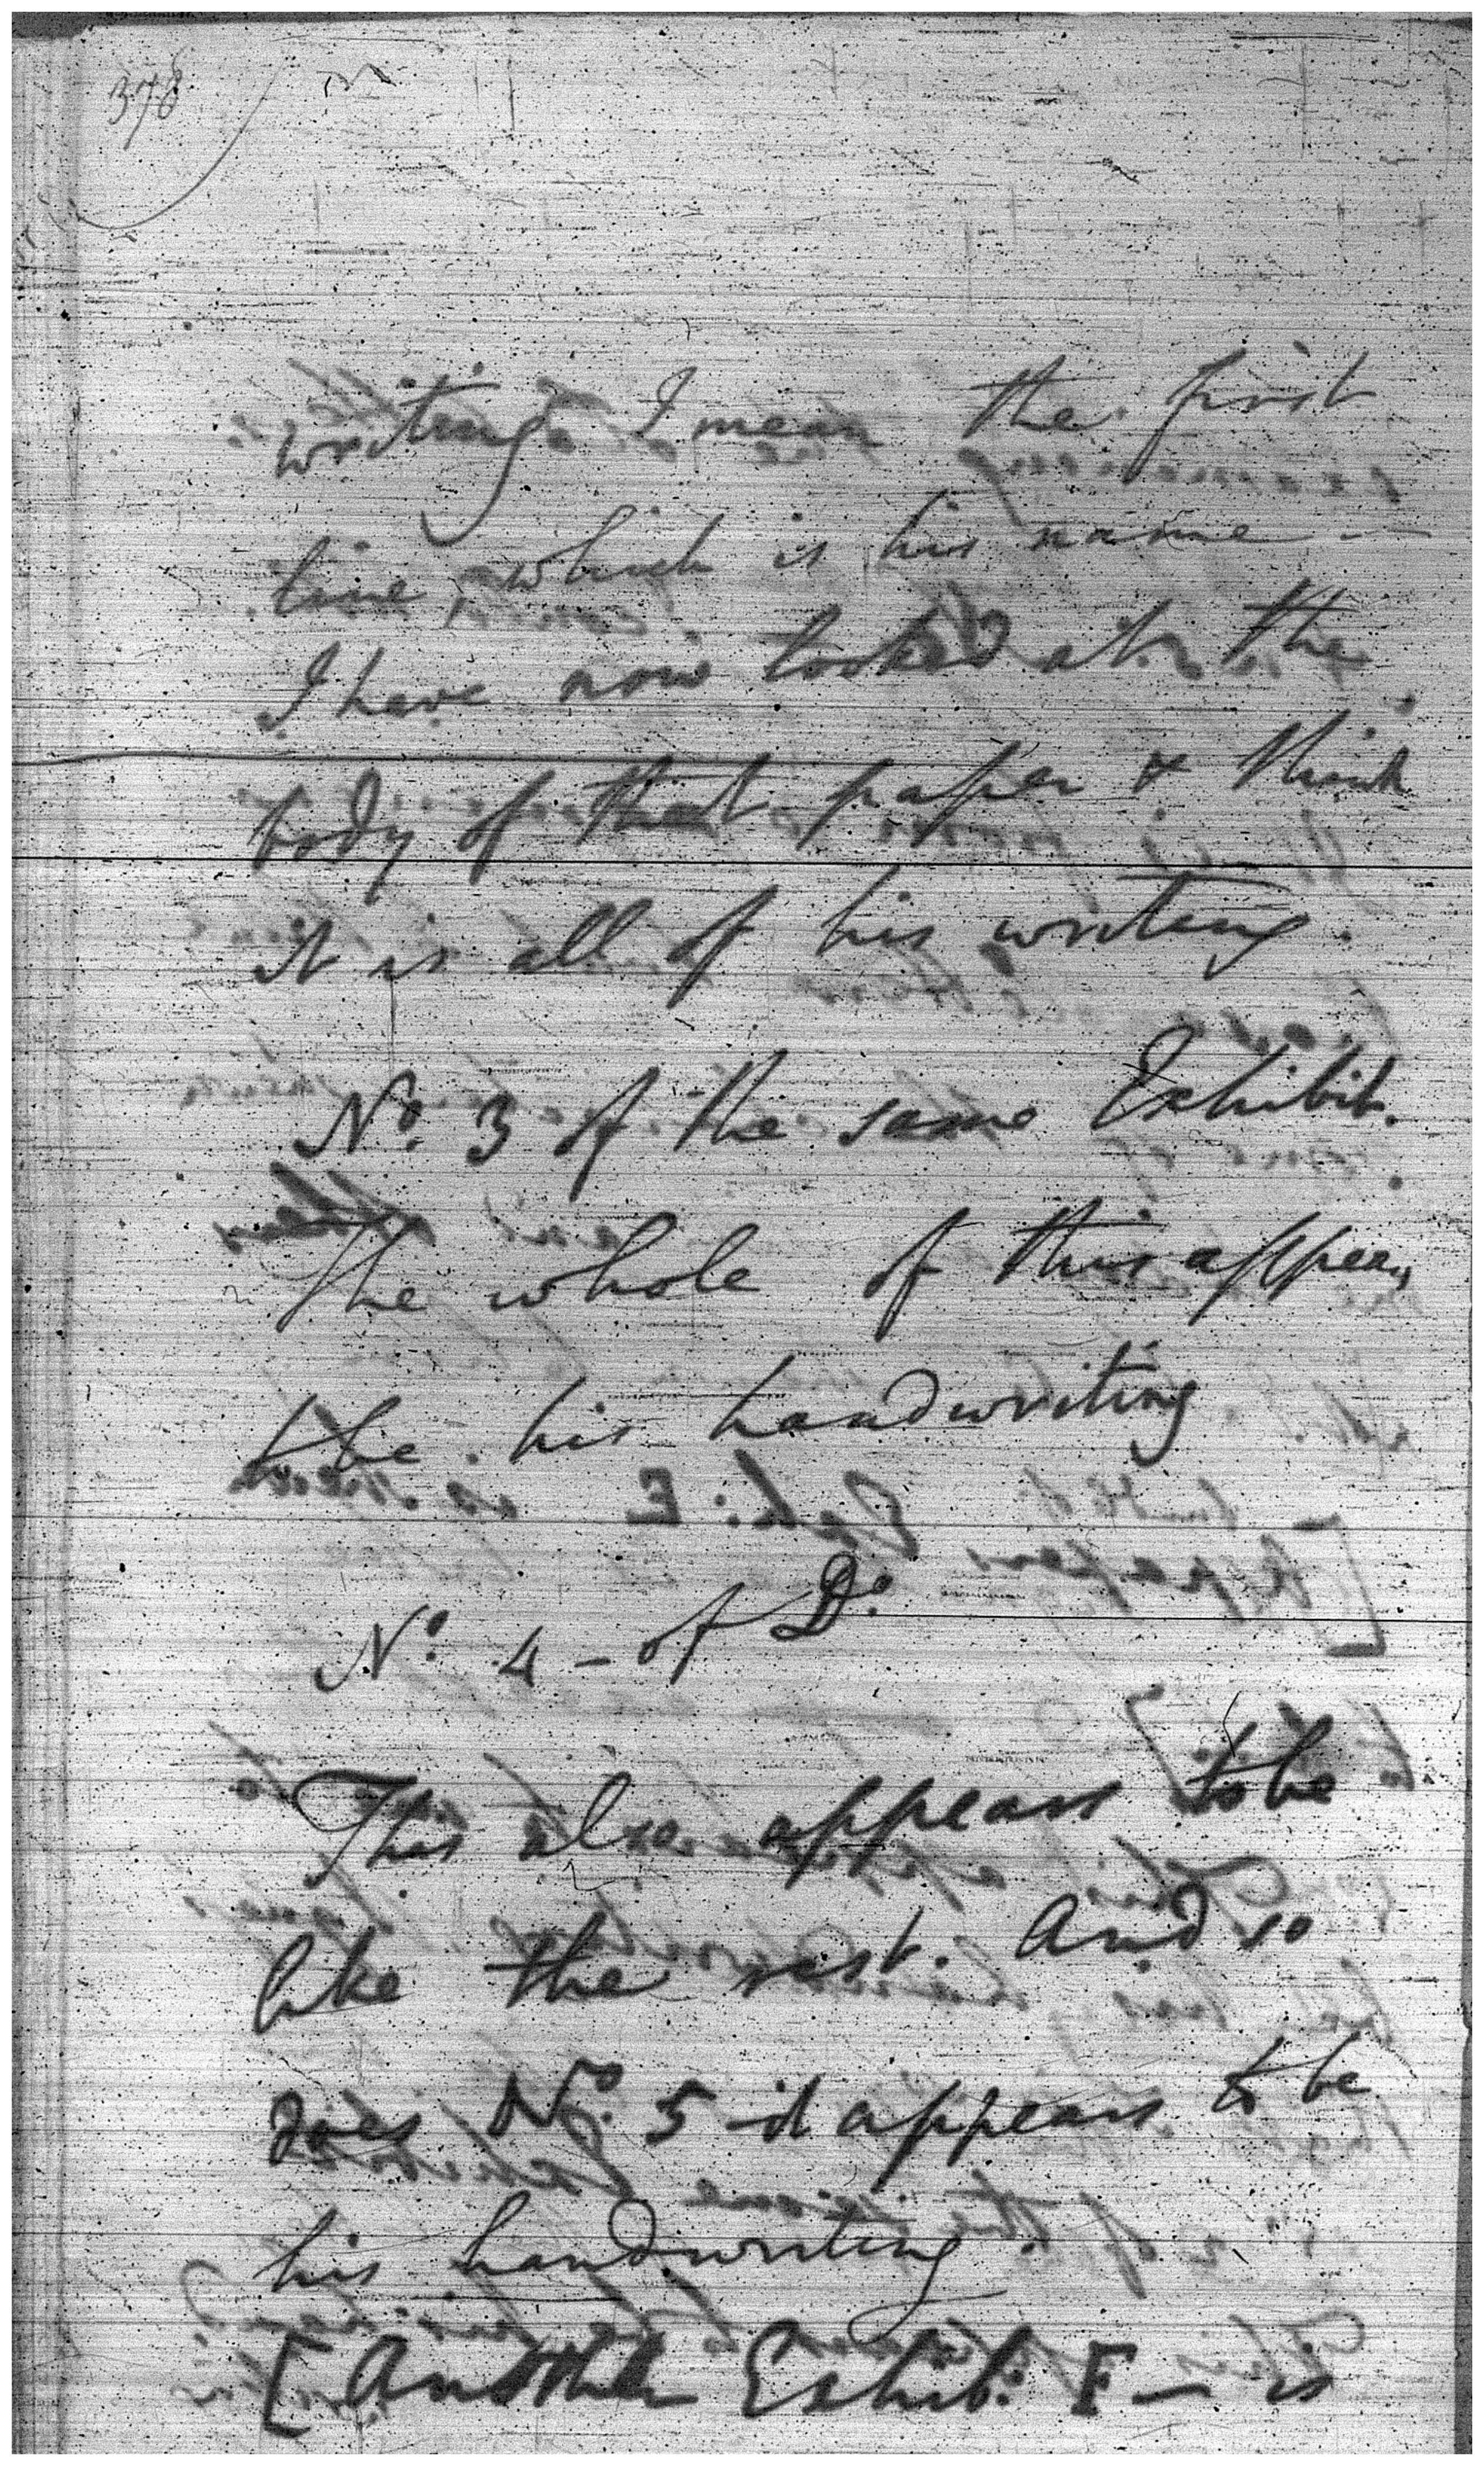 378
writing. I mean the first
line, which is his name -
I have now looked at the
body of that paper & think
it is all of his writing.
No. 3 of the same Exhibit.
The whole of this appears
to be his handwriting
No. 4 - of Do.
This also appears to be
like the rest. And so
does No. 5 it appears to be
his handwriting.
[Another Exhib: F - is